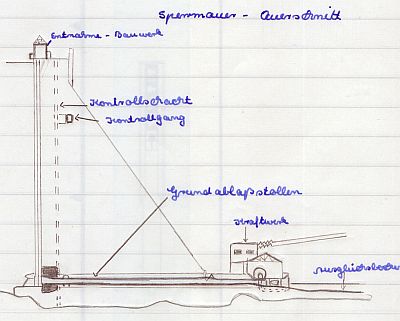 Sperrmauer - Querschnitt
Entnahme - Bauwerk
Kontrollschacht
Kontrollgang
Grundablaßstollen
Kraftwerk